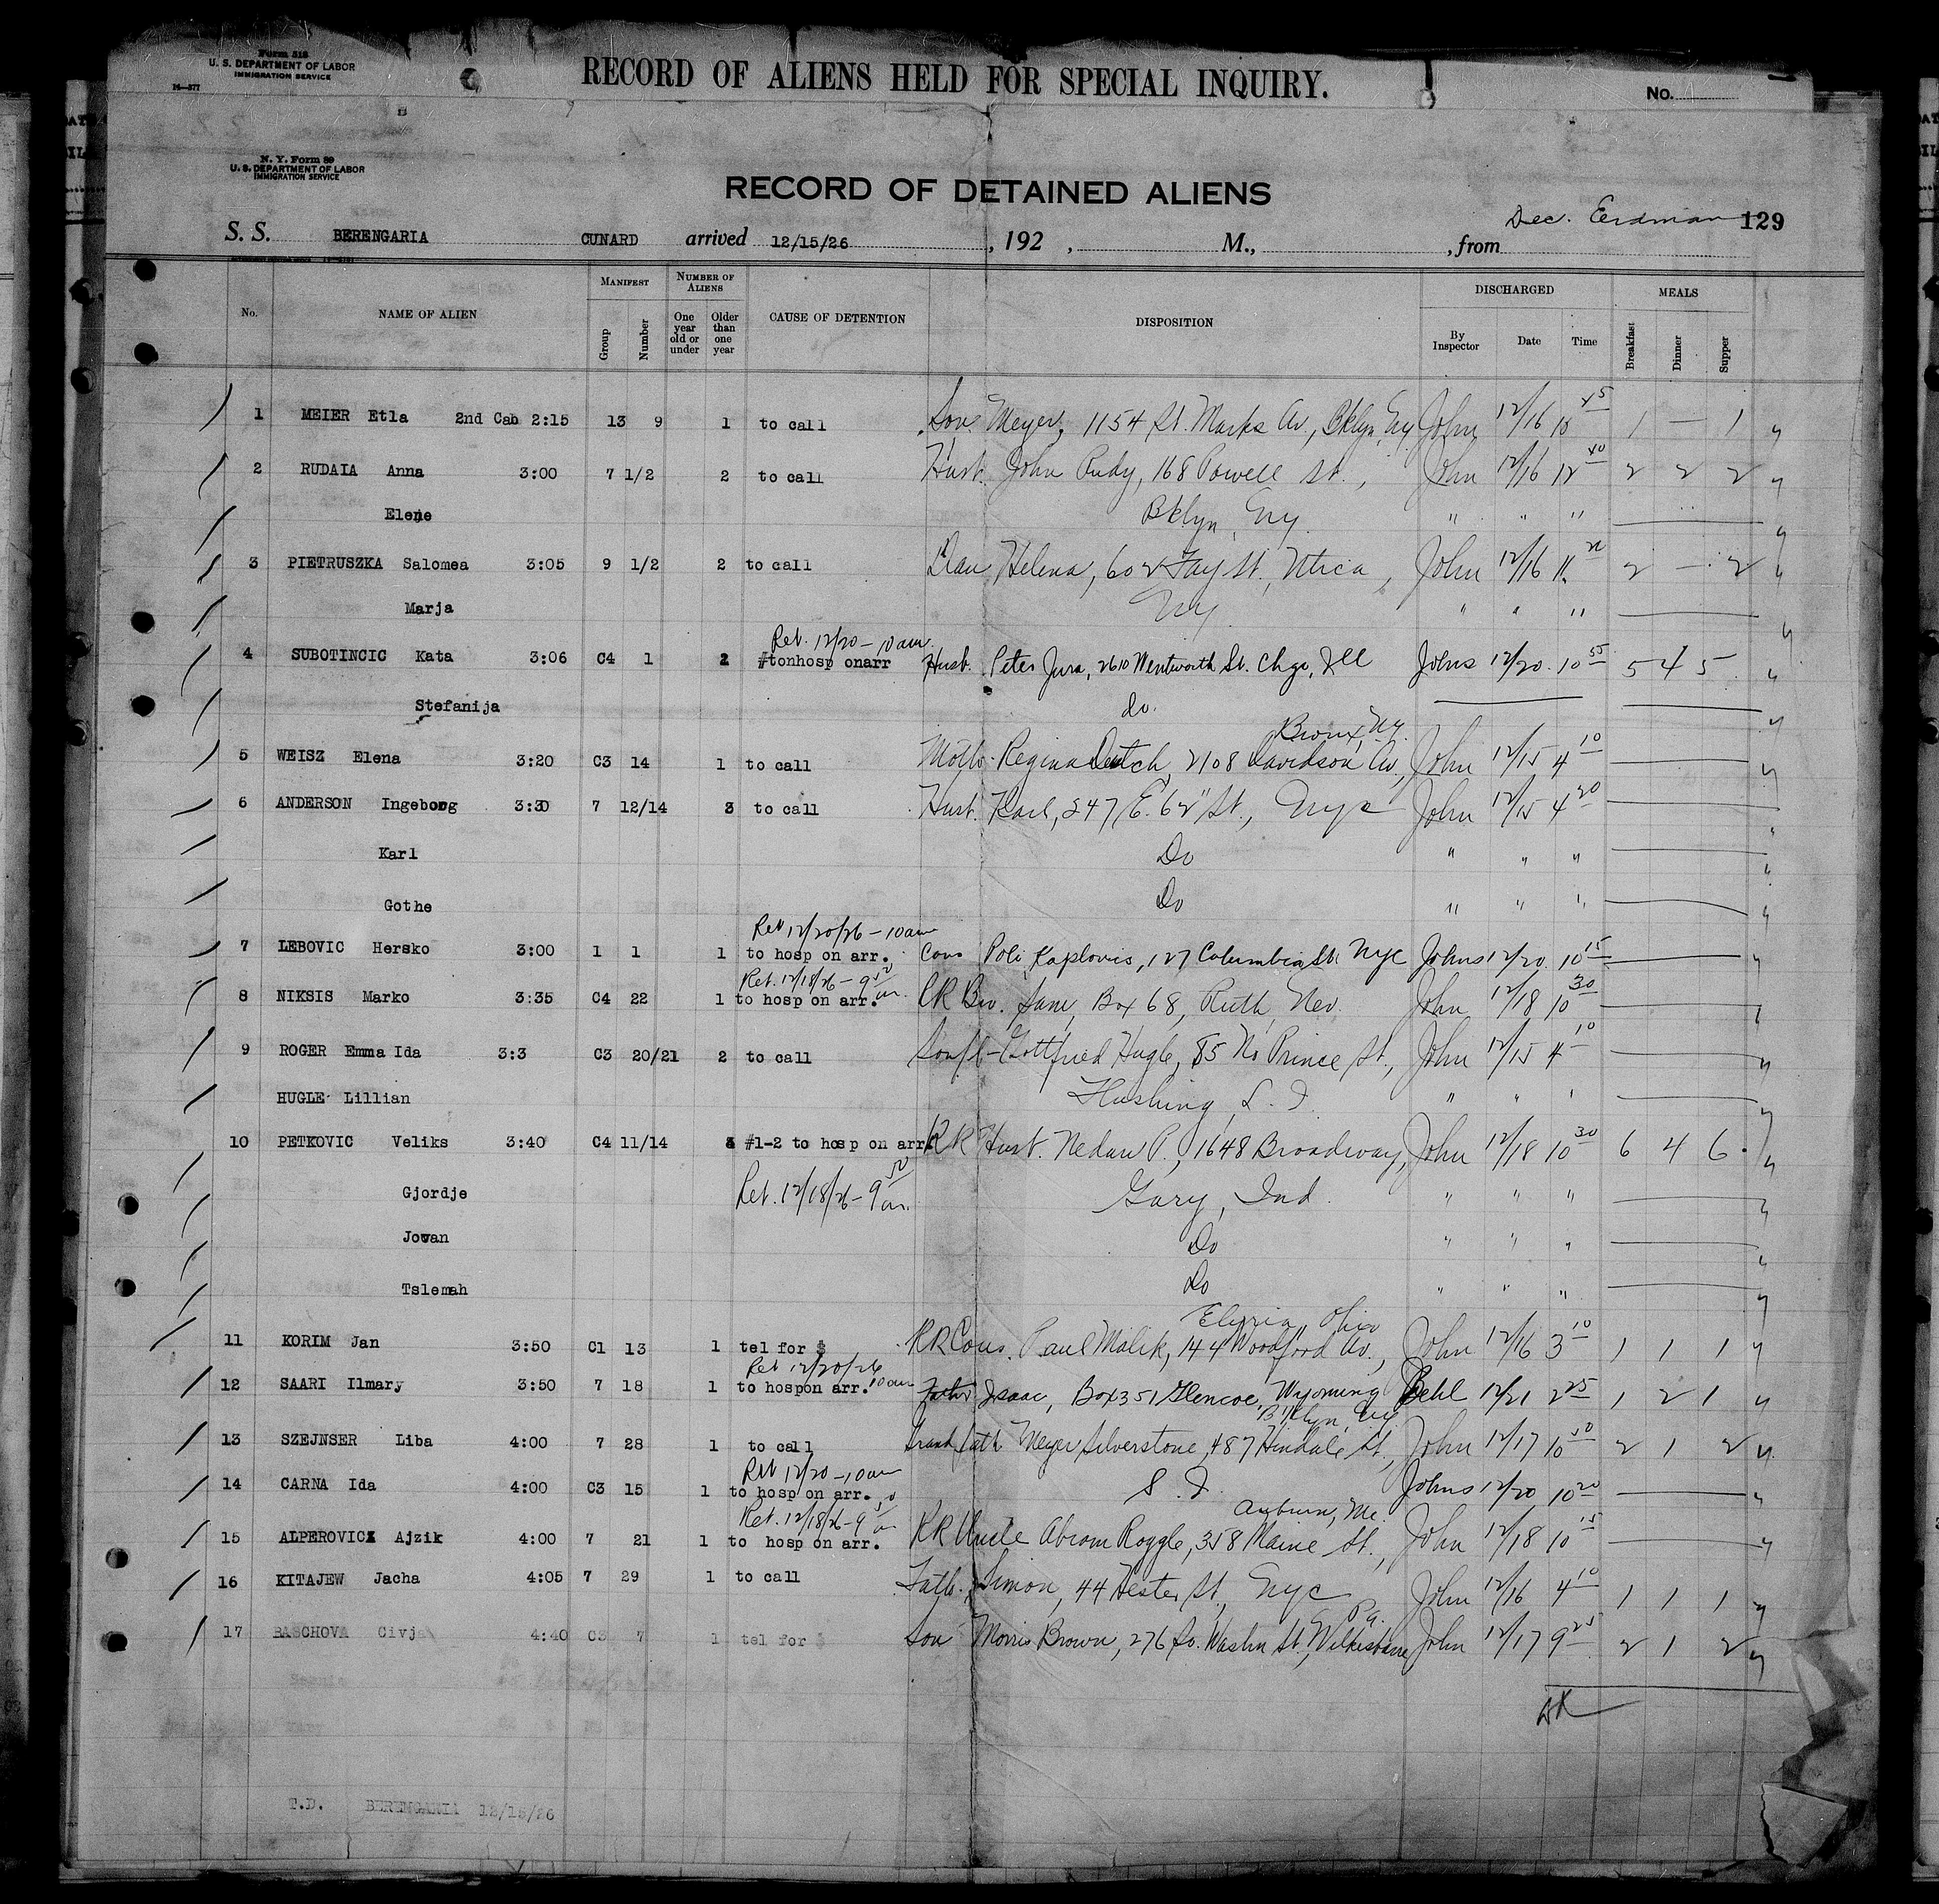 Form 518
U. S. DEPARTMENT OF LABOR
IMMIGRATION SERVICE
14—377
RECORD OF ALIENS HELD FOR SPECIAL INQUIRY.
No.
N. Y. Form 89
U. S. DEPARTMENT OF LABOR
IMMIGRATION SERVICE
RECORD OF DETAINED ALIENS
Dec. Erdman 129
S. S. BERENGARIA CUNARD arrived 12/15/26 , 192 , M., , from
No. NAME OF ALIEN MANIFEST Group Number NUMBER OF ALIENS One year old or under Older than one year CAUSE OF DETENTION DISPOSITION DISCHARGED By Inspector Date Time MEALS Breakfast Dinner Supper
1 MEIER Etla 2nd Cab 2:15 13 9 1 to call Son Meyer, 1154 St. Marks Av., Bklyn, Ny John 12/16 10 45 1 — 1
2 RUDAIA Anna 3:00 7 1/2 2 to call Husb. John Rudy, 168 Powell St., John 12/16 12 40 2 2 2
Elene Bklyn, Ny. " " "
3 PIETRUSZKA Salomea 3:05 9 1/2 2 to call Helena, 602 Fay St., Utica, John 12/16 11 2 — 2
Marja Ny " " "
Ret. 12/20 – 10 am.
4 SUBOTINCIC Kata 3:06 C4 1 2 #tonhosp onarr Husb. Peter Jura, 2610 Wentworth St. Chgo, Ill Johns 12/20 10 55 5 4 5
Stefanija do.
Bronx, Ny.
5 WEISZ Elena 3:20 C3 14 1 to call Moth. Regina Deutch, 2108 Davidson Av., John 12/15 4 10
6 ANDERSON Ingeborg 3:30 7 12/14 3 to call Husb. Karl, 247 E. 62" St., Nyc John 12/15 4 20
Karl Do " " "
Gothe Do " " "
Ret 12/20/26 – 10 am
7 LEBOVIC Hersko 3:00 1 1 1 to hosp on arr. Cous Poli Kaplovis, 127 Columbia St. Nyc Johns 12/20 10 15
Ret. 12/18/26 – 9 50 am.
8 NIKSIS Marko 3:35 C4 22 1 to hosp on arr. RR Bro. Sam, Box 68, Ruth, Nev. John 12/18 10 30
9 ROGER Emma Ida 3:3 C3 20/21 2 to call Gottfried Hugle, 85 No Prince St., John 12/15 4 10
HUGLE Lillian Flushing L. I. " " "
10 PETKOVIC Veliks 3:40 C4 11/14 4 #1-2 to hosp on arr RR Husb. Nedan P., 1648 Broadway, John 12/18 10 30 6 4 6
Gjordje Ret. 12/18/26 – 9 50 am. Gary, Ind. " " "
Jovan Do " " "
Tslemah Do " " "
Elyria, Ohio
11 KORIM Jan 3:50 C1 13 1 tel for $ RR Cous. Paul Malik, 144 Woodford Av., John 12/16 3 10 1 1 1
Ret 12/20/26 10 am
12 SAARI Ilmary 3:50 7 18 1 to hospon arr. Father Isaac, Box 351 Glencoe, Wyoming Behl 12/21 2 25 1 2 1
Bklyn Ny
13 SZEJNSER Liba 4:00 7 28 1 to call Grand fath Meyer Silverstone, 487 Hindale St., John 12/17 10 50 2 1 2
Ret 12/20 – 10 am
14 CARNA Ida 4:00 C3 15 1 to hosp on arr. S. I. Johns 12/20 10 20
Ret. 12/18/26 – 9 50 am Auburn, Me.
15 ALPEROVICZ Ajzik 4:00 7 21 1 to hosp on arr. RR Uncle Abrom Roggle, 358 Maine St., John 12/18 10 15
16 KITAJEW Jacha 4:05 7 29 1 to call Fath. Simon, 44 Hester St., Nyc John 12/16 4 10 1 1 1
Pa.
17 BASCHOVA Civja 4:40 C3 7 1 tel for $ Son Morris Brown, 276 So. Washn St., Wilkesbarre John 12/17 9 25 2 1 2
T.D. BERENGARIA 12/15/26